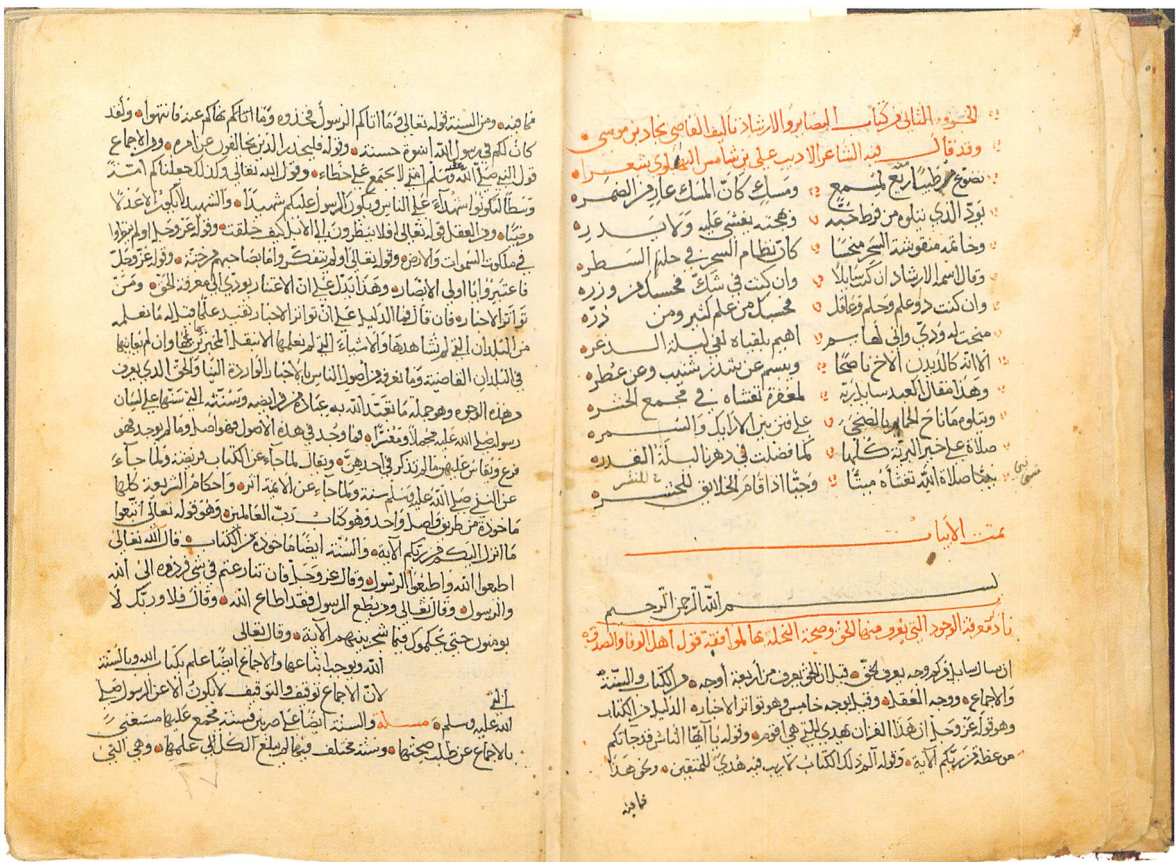 الجزء الثاني من كتاب البصاير والارشاد تأليف القاضي نجاد بن موسى
وقد قال فيه الشاعر الاديب علي بن شامس البهلوي شعرا
تضوع طيبا ريع لمسمع ومسك كان المسك عاد من الضمر
يود الذي يتلوه من فرط حبه وبهجته يغشى عليه ولا يدره
وخاتمه منقوشة السحر كان نظام السحر في حليه السطر
وقال اسمه الارشاد ان كنت سايلا وان كنت في شك فحسبك من وزره
وان كنت ذو علم وحلم وعاقل فحسبك من علم كثير ومن درّه
منحت له ودي واني لهايم اهيم بلقياه لفي ليلة الذعر
الا انه كالدين الاخ ناصحا ويبسم عن وعن عطر
وهذا مقال العبد سايل ربه لمغفرة تغشاه في مجمع الحشر
ويتلوه ما ناح الحمام بالضحى على فنن بين الارايك والسمر
صلاة على خير البرية كلها كما فضلت في دهرنا ليلة القدر
صلاة الله تغشاه ميتا وحيا اذا قام الخلايق للحشر
تمت الابيات
بسم الله الرحمن الرحيم
باب معرفة الوجوه التي يعرف منها الحق وصحة النحلة بها لموافقة قول اهل الوفا والصدق
ان سال سايل فقال من كم وجه يعرف الحق قيل ان الحق يعرف من أربعة أوجه من الكتاب والسنة
والاجماع ووجه العقل وقيل بوجه خامس وهو تواتر الاخبار الدليل من الكتاب
وهو قوله عز وجل ان هذا القران يهدي للتي هي أقوم وقوله يا أيها الناس قد جاتكم
موعظة من ربكم الاية وقوله الم ذلك الكتاب لا ريب فيه هدى للمتقين ونحو هذا
فما فيه
فما فيه ومن السنة قوله تعالى وما اتاكم الرسول فخذوه وما نهاكم عنه فانتهوا ولقد
كان لكم في رسول الله اسوة حسنة وقوله فليحذر الذين يخالفون عن امره ومن الاجماع
قول النبي صلى الله عليه وسلم أمتي لا تجتمع على خطاء وقول الله تعالى وكذلك جعلناكم أمة
وسطا لتكونوا شهداء على الناس ويكون الرسول عليكم شهيدا والشهيد لا يكون الا عدلا
ومن العقل قوله تعالى أفلا ينظرون الى الابل كيف خلقت وقوله عز وجل اولم ينظروا
في ملكوت السموات والارض وقوله تعالى أولم يتفكروا ما بصاحبهم من جنة وقوله عز وجل
فاعتبروا يا اولي الابصار وهذا يدل على ان الاعتبار يودي الى معرفة الحق ومن
تواتر الاخبار فان قال فما الدليل على ان تواتر الاخبار يفيد علما قيل له ما نعلمه
من البلدان التي لم نشاهدها والاشياء التي لم نعلمها الا بنقل المخبرين وان لم نعاينها
في البلدان القاصية وما نعرفه من أصول الناس بالاخبار الواردة الينا والحق الذي يعرف
من هذه الوجوه وهو جملة ما تعبد الله به عباده من فرايضه وسنته التي سنها على لسان
رسوله صلى الله عليه مجملا ومفسرا فما وجد في هذه الاصول فهو اصل وما لم يوجد فهو
فرع ويقاس عليهن ما لم يذكر في احدهن ويقال لما جاء عن الكتاب فريضة ولما جاء
عن النبي صلى الله عليه وسلم سنة ولما جاء عن الائمة اثر واحكام الشريعة كلها
ماخوذة من طريق واصل واحد وهو كتاب رب العالمين وهو قوله تعالى اتبعوا
ما انزل اليكم من ربكم الاية والسنة أيضا ماخوذة من الكتاب قال الله تعالى
اطيعوا الله واطيعوا الرسول وقال عز وجل فان تنازعتم في شي فردوه الى الله
والرسول وقال تعالى ومن يطع الرسول فقد اطاع الله وقال فلا وربك لا
يومنون حتى يحكموك فيما شجر بينهم الاية وقال تعالى
الله ويوجب اتباعها والاجماع ايضا علم بكتاب الله وبالسنة التي
لان الاجماع توقيف والتوقيف لا يكون الا عن الرسول صلى
الله عليه وسلم مسلة والسنة أيضا على ضربين فسنة مجتمع عليها مستغنى
بالاجماع عن طلب صحتها وسنة مختلف فيها لم يبلغ الكل الى علمها وهي التي